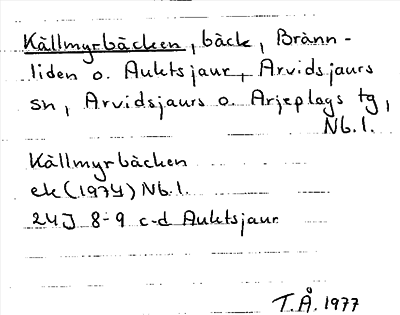 Källmyrbäcken, bäck, Bränn-
liden o. Auktsjaur, Arvidsjaurs
sn, Arvidsjaurs o. Arjeplogs tg,
Nb.l.
Källmyrbäcken
ek (1974) Nb.l.
24J 8-9 c-d Auktsjaur
T.Å. 1977